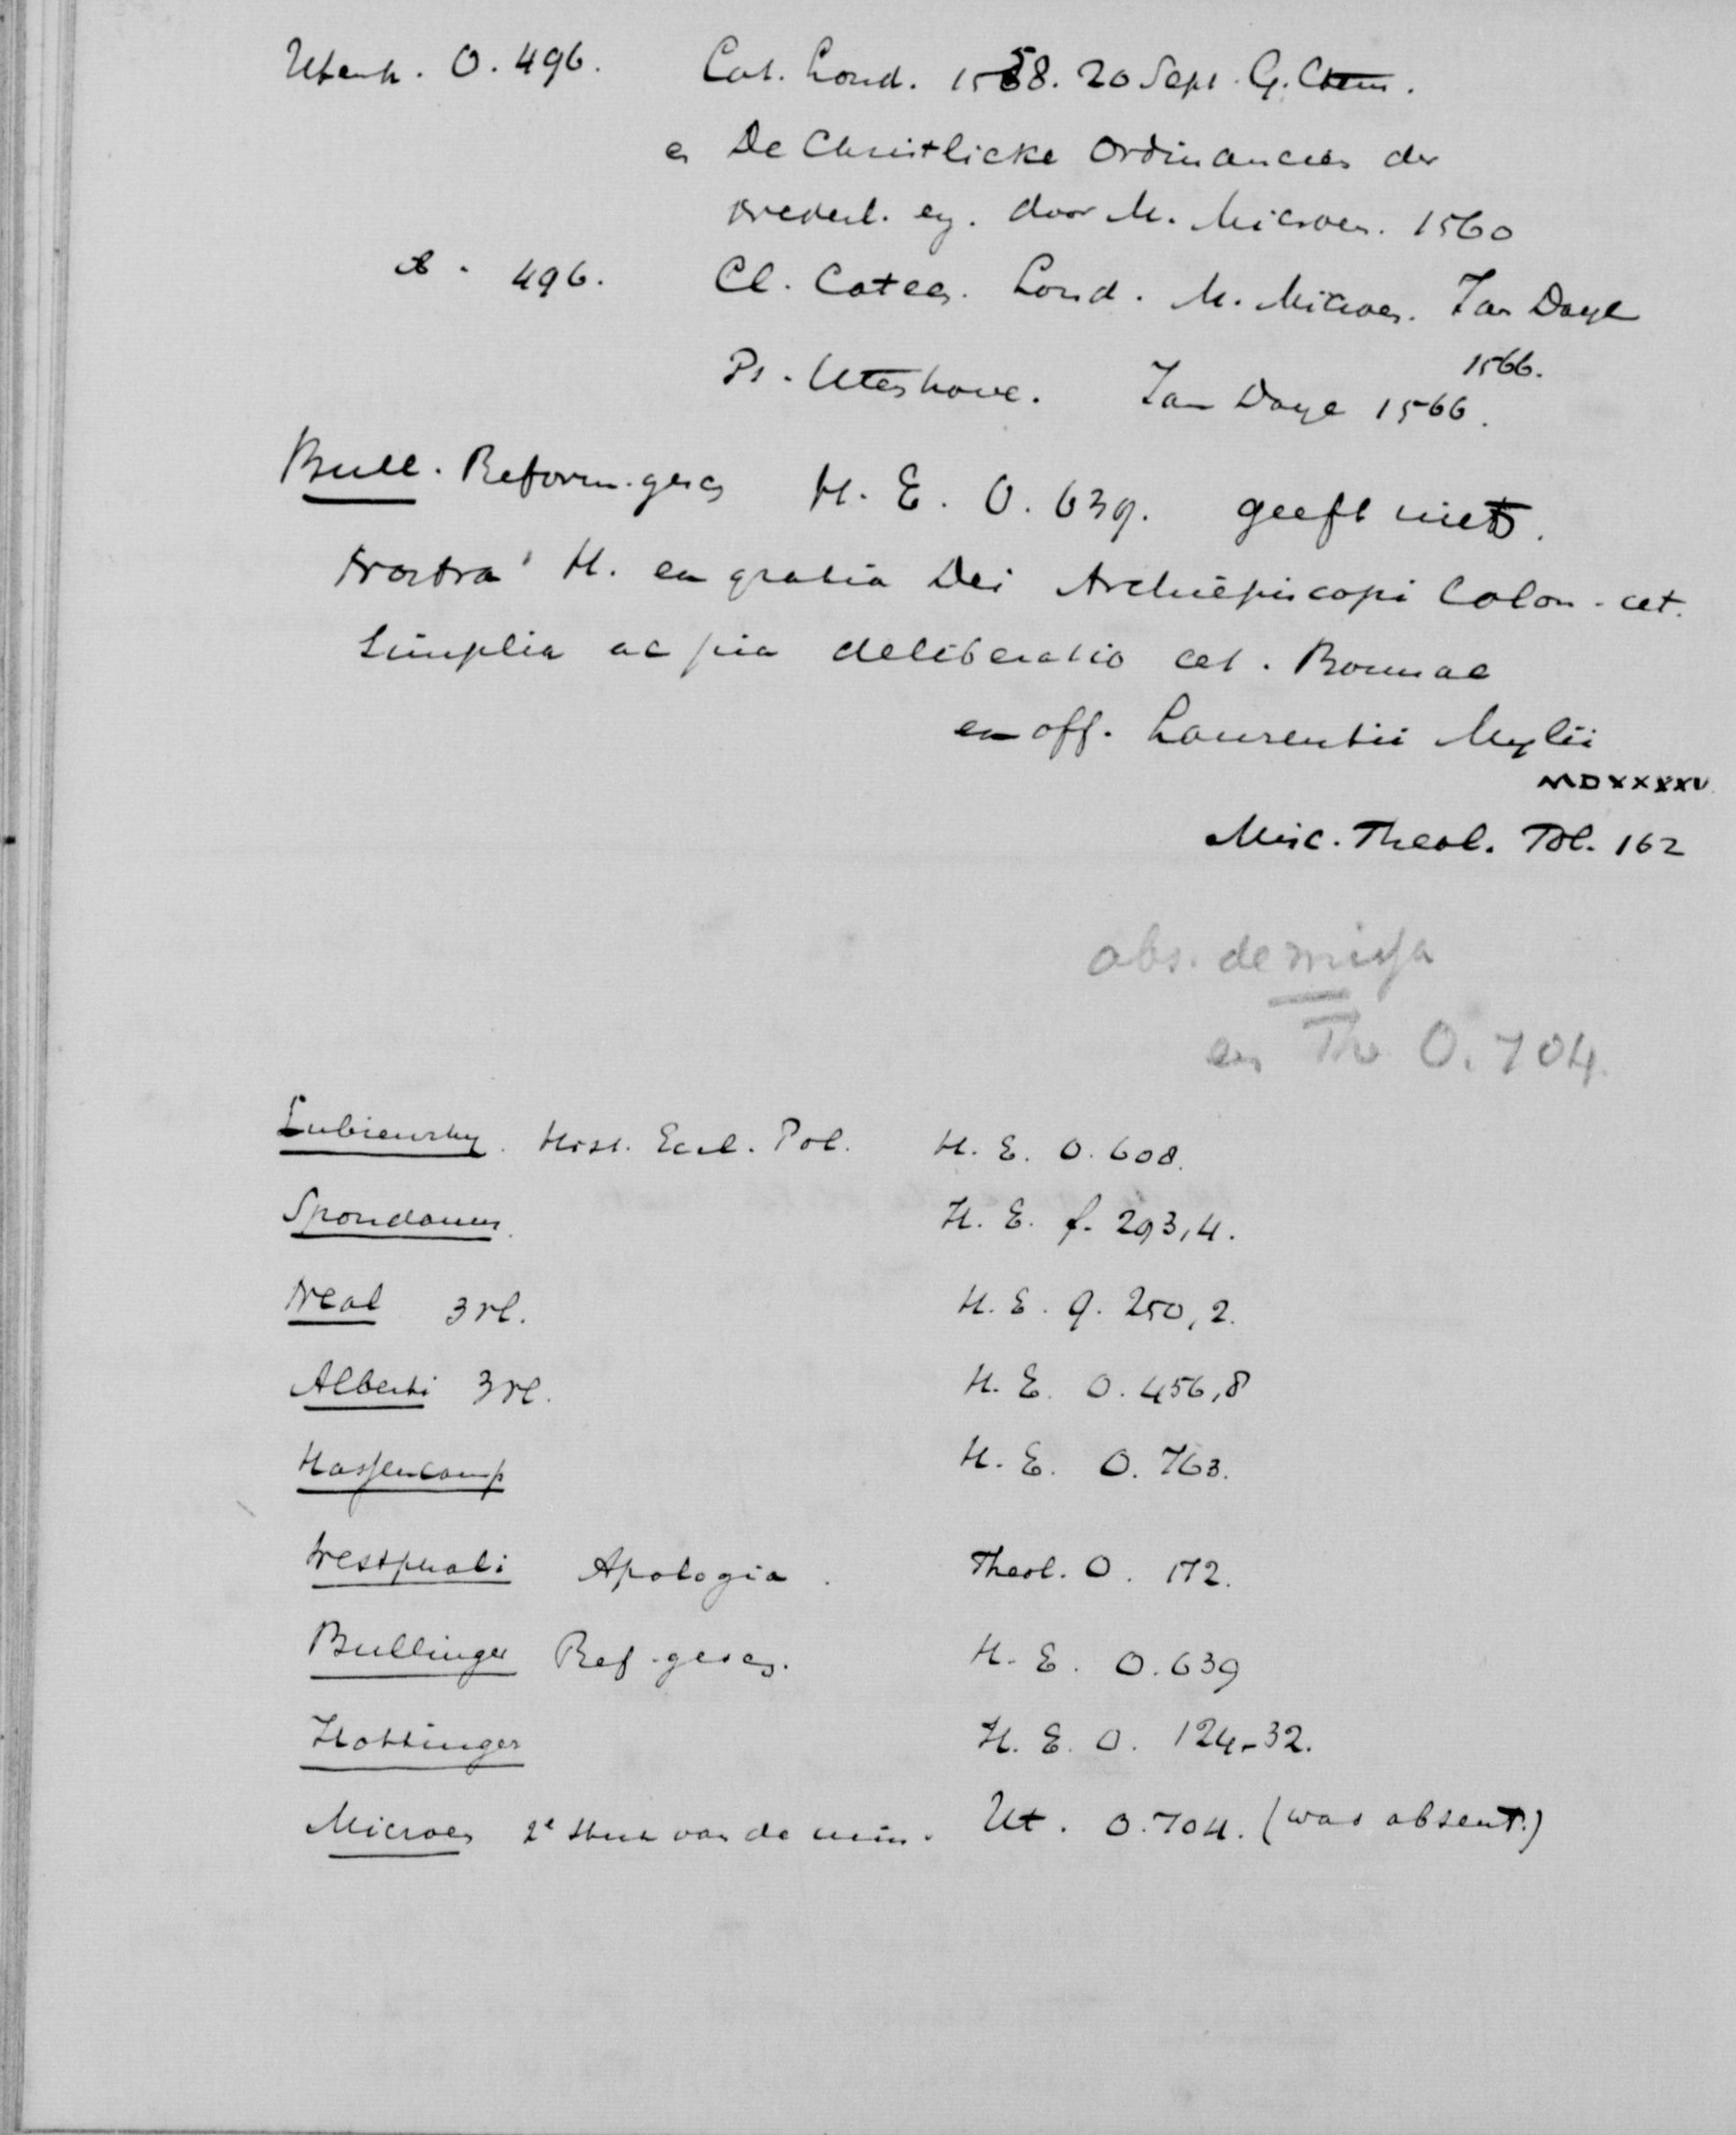 Utenh. O. 496. Cat. Lond. 1558. 20 Sept. G. Ctem.
en De Christlicke Ordinancien der
Nederl. eg. door M. Micron. 1560
d. 496. Cl. Catec. Lond. M. Micron. Jan Daye
1566.
Ps. Utenhove. Jan Daye 1566.
Bull. Reform. gesch H. E. O. 639. geeft niets.
Nostra H. ex gratia Dei Archiepiscopi Colon. cet.
Simplex ac pia deliberatio cet. Bonnae
ex off. Laurentii Mylii
MDXXXXV.
Misc. Theol. Fol. 162
abs. de missa
en Th O. 704.
Lubiensky. Hist. Eccl. Pol. H. E. O. 608.
Spondanus. H. E. f. 293,4.
Neal 3 vl. H. E. q. 250,2.
Alberti 3 vl. H. E. O. 456,8
Hassencamp H. E. O. 763.
Westphali Apologia. Theol. O. 172.
Bullinger Ref. gesch. H. E. O. 639
Hottinger H. E. O. 124-32.
Micron 2e stuk van de mis. Ut. O. 704. (was absent.)